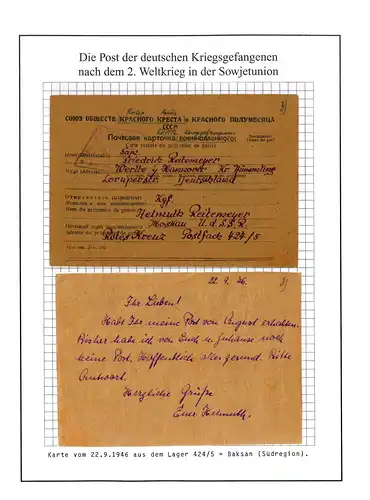 Die Post der deutschen Kriegsgefangenen
nach dem 2. Weltkrieg in der Sowjetunion
СОЮЗ ОБЩЕСТВ КРАСНОГО КРЕСТА и КРАСНОГО ПОЛУМЕСЯЦА
СССР
Почтовая карточка военнопленного
Carte postale du prisonnier de guerre
Friedrich Reitemeyer
Werlte g Hannover Kr Hümmling
Loruperstr. Deutschland
Kgf.
Helmuth Reitemeyer
Moskau U.d.S.S.R.
Rotes Kreuz Postfach 424/5
22.9.46.
Ihr Lieben!
Habt Ihr meine Post von August erhalten.
Bisher habe ich von Euch u. Zuhause noch
keine Post. Hoffentlich alles gesund. Bitte
Antwort.
Herzliche Grüße
Euer Helmuth.
Karte vom 22.9.1946 aus dem Lager 424/5 = Baksan (Südregion).